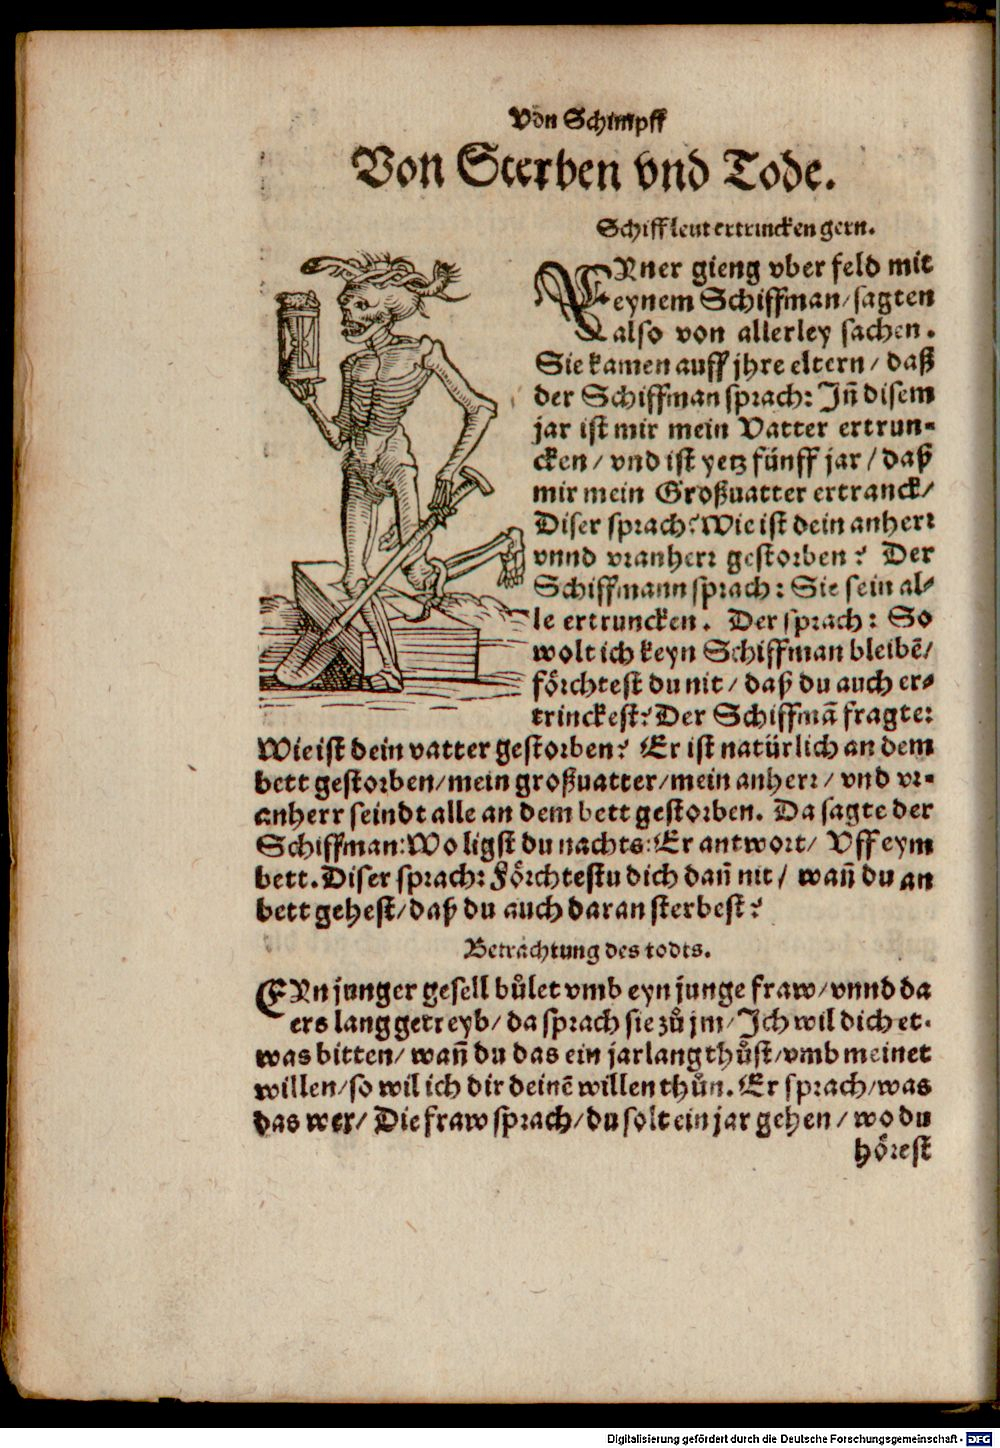 Von Schimpff
Von Sterben vnd Tode.
Schiffleut ertrincken gern.
EYner gieng vber feld mit
eynem Schiffman/sagten
also von allerley sachen.
Sie kamen auff jhre eltern/ daß
der Schiffman sprach: Jñ disem
jar ist mir mein Vatter ertrun-
cken/ vnd ist yetz fünff jar/ daß
mir mein Großuatter ertranck/
Diser sprach: Wie ist dein anherr
vnnd vranherr gestorben? Der
Schiffmann sprach: Sie sein al-
le ertruncken. Der sprach: So
wolt ich keyn Schiffman bleibē/
förchtest du nit/ daß du auch er-
trinckest? Der Schiffmā fragte:
Wie ist dein vatter gestorben? Er ist natürlich an dem
bett gestorben/mein großuatter/mein anherr/ vnd vr-
anherr seindt alle an dem bett gestorben. Da sagte der
Schiffman: Wo ligst du nachts: Er antwort/ Vff eym
bett. Diser sprach: Förchtestu dich dañ nit/ wañ du an
bett gehest/daß du auch daran sterbest?
Betrachtung des todts.
EYn junger gesell bůlet vmb eyn junge fraw/vnnd da
ers lang getreyb/ da sprach sie zů jm/ Jch wil dich et-
was bitten/ wañ du das ein jar lang thůst/vmb meinet
willen/so wil ich dir deinē willen thůn. Er sprach/was
das wer/ Die fraw sprach/du solt ein jar gehen/ wo du
hörest
Digitalisierung gefördert durch die Deutsche Forschungsgemeinschaft - DFG